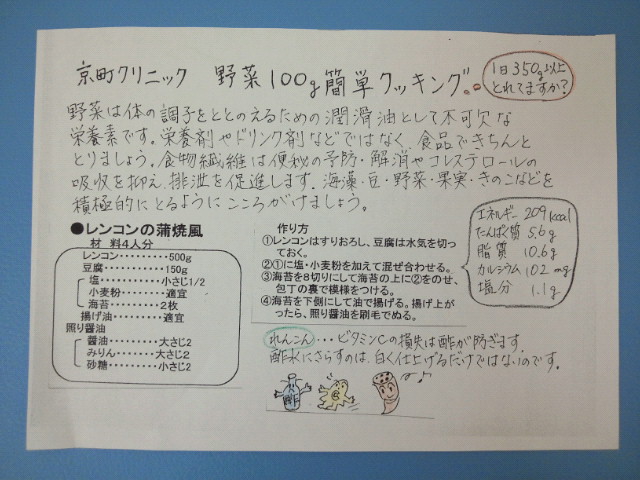 京町クリニック 野菜100g簡単クッキング
1日350g以上
とれてますか?
野菜は体の調子をととのえるための潤滑油として不可欠な
栄養素です。栄養剤やドリンク剤などではなく、食品できちんと
とりましょう。食物繊維は便秘の予防・解消やコレステロールの
吸収を抑え、排泄を促進します。海藻・豆・野菜・果実・きのこなどを
積極的にとるようにこころがけましょう。
●レンコンの蒲焼風
材 料4人分
レンコン・・・・・・・・・500g
豆腐・・・・・・・・・・150g
塩・・・・・・・・・小さじ1/2
小麦粉・・・・・・・適宜
海苔・・・・・・・・2枚
揚げ油・・・・・・・・適宜
照り醤油
醤油・・・・・・・・大さじ2
みりん・・・・・・・大さじ2
砂糖・・・・・・・・小さじ2
作り方
①レンコンはすりおろし、豆腐は水気を切っ
ておく。
②①に塩・小麦粉を加えて混ぜ合わせる。
③海苔を8切りにして海苔の上に②をのせ、
包丁の裏で模様をつける。
④海苔を下側にして油で揚げる。揚げ上が
ったら、照り醤油を刷毛でぬる。
エネルギー 209kcal
たんぱく質 5.6g
脂質 10.6g
カルシウム 102mg
塩分 1.1g
れんこん・・・ビタミンCの損失は酢が防ぎます。
酢水にさらすのは、白く仕上げるだけではないのです。